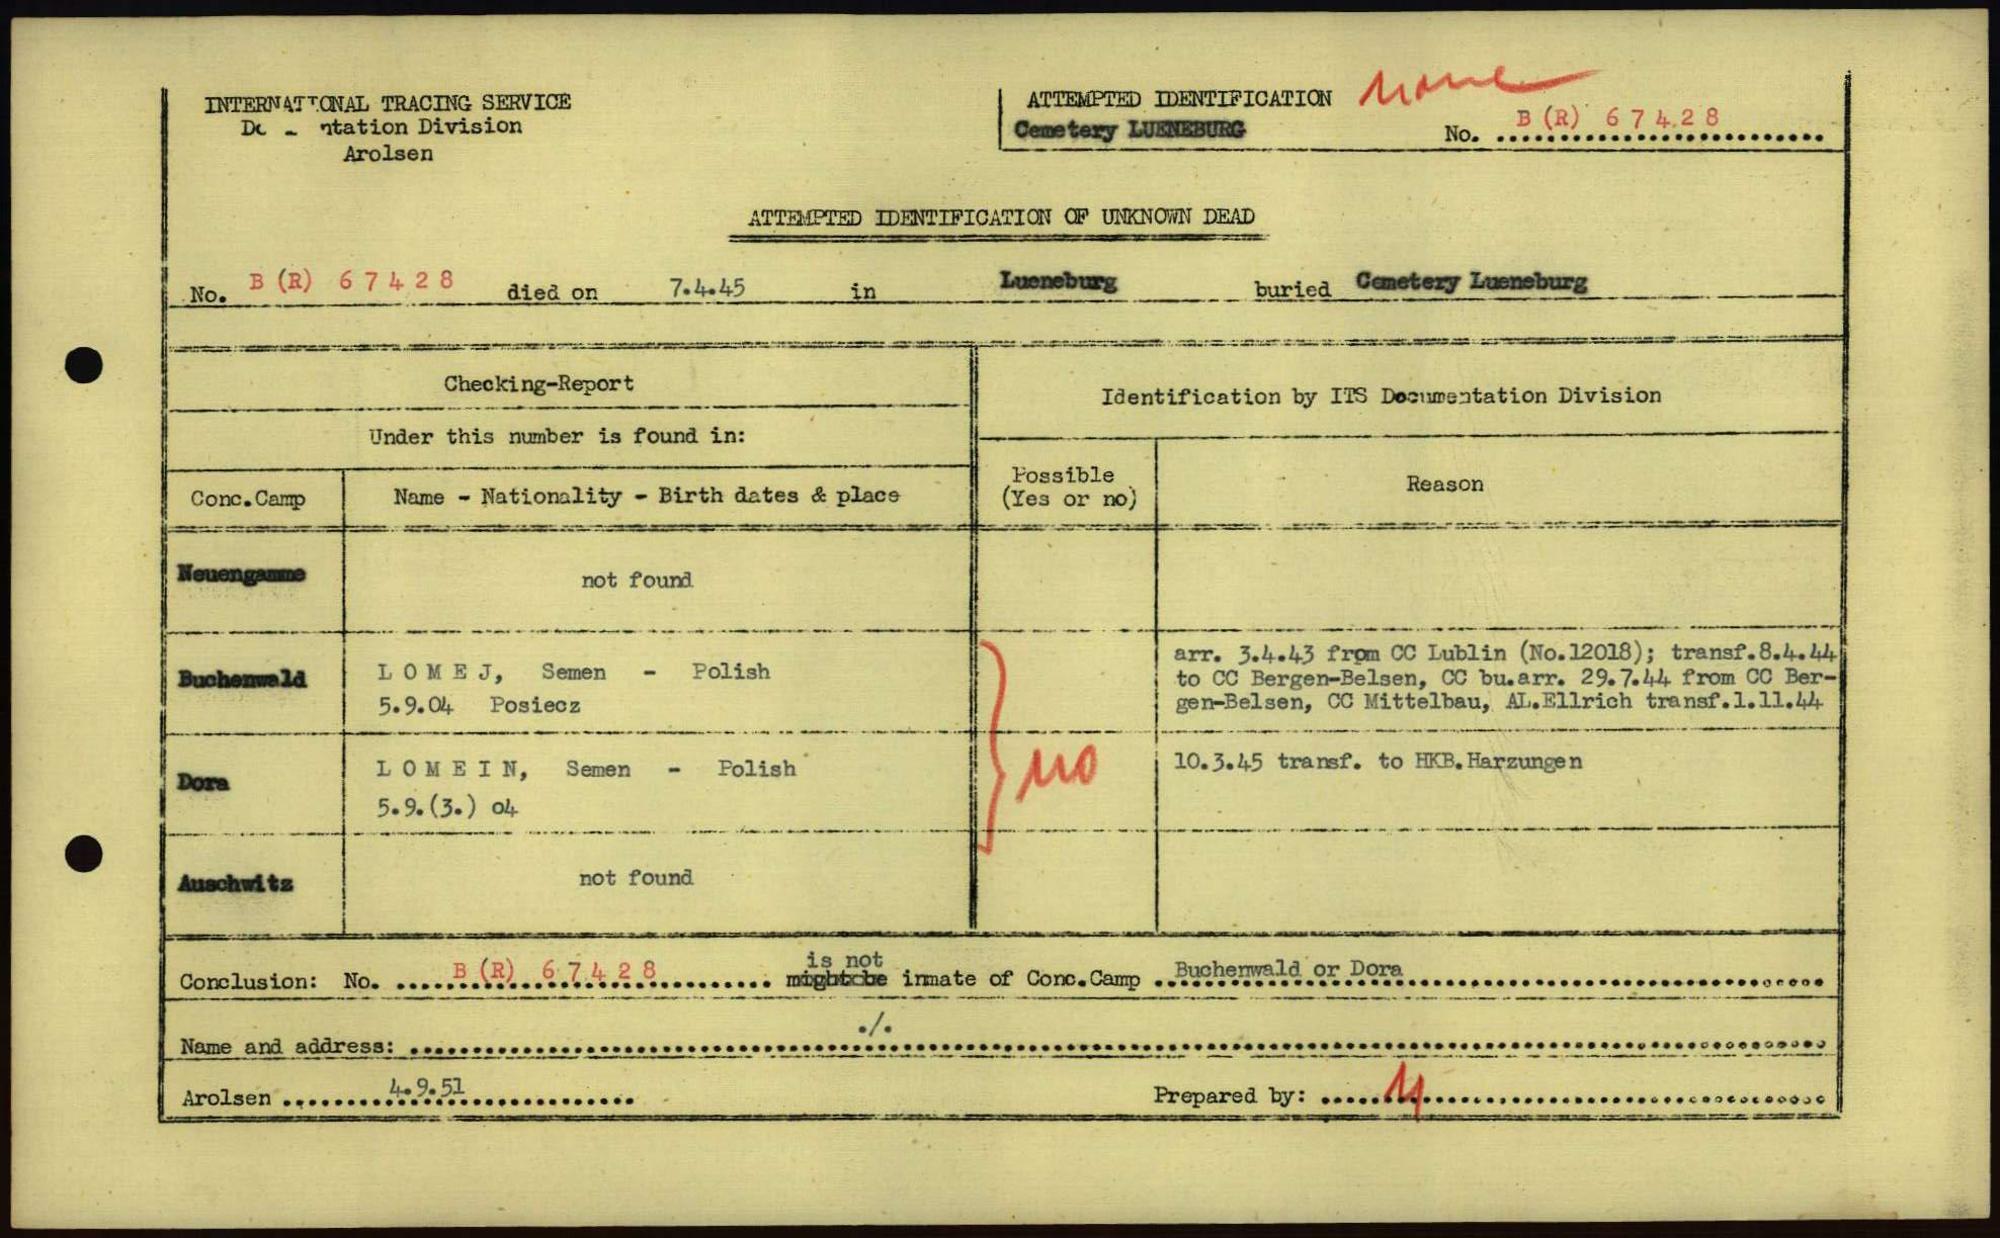 INTERNATIONAL TRACING SERVICE
Division
Arolsen
ATTEMPTED IDENTIFICATION none
Cemetery LUENEBURG
No. B (R) 6 7 4 2 8
ATTEMPTED IDENTIFICATION OF UNKNOWN DEAD
No. B (R) 6 7 4 2 8 died on 7.4.45 in Lueneburg buried Cemetery Lueneburg
Checking-Report
Identification by ITS Documentation Division
Under this number is found in:
Conc.Camp
Name - Nationality - Birth dates & place
Possible
(Yes or no)
Reason
Neuengamme
not found
Buchenwald
L O M E J, Semen - Polish
5.9.04 Posiecz
arr. 3.4.43 from CC Lublin (No.12018); transf.8.4.44
to CC Bergen-Belsen, CC bu.arr. 29.7.44 from CC Ber-
gen-Belsen, CC Mittelbau, AL.Ellrich transf.1.11.44
Dora
L O M E I N, Semen - Polish
5.9.(3.) 04
no
10.3.45 transf. to HKB.Harzungen
Auschwitz
not found
is not
Conclusion: No. B (R) 6 7 4 2 8 might be inmate of Conc.Camp Buchenwald or Dora
Name and address: ./.
Arolsen 4.9.51
Prepared by: